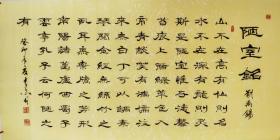 陋室銘
劉禹錫
山不在高有仙則名
水不在深有龍則靈
斯是陋室惟吾德馨
苔痕上階綠草色入
簾青談笑有鴻儒往
來無白丁可以調素
琴閱金經無絲竹之
亂耳無案牘之勞形
南陽諸葛廬西蜀子
雲亭孔子云何陋之
有
癸卯年夏